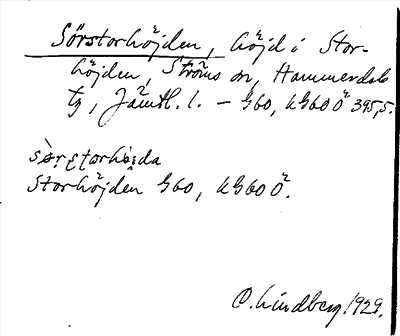 Sörstorhöjden, höjd i Stor-
höjden, Ströms sn, Hammerdals
tg, Jämtl. l. – G60, kG60Ö² 395,5.
Storhöjden G60, kG60Ö².
C. Lindberg 1929.